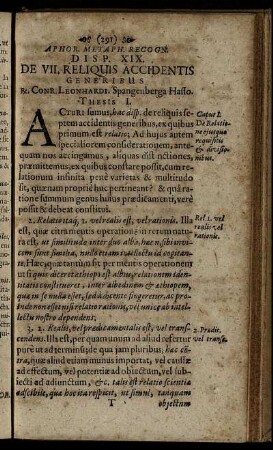 (291)
APHOR. METAPH. RECOGN.
DISP. XIX.
DE VII. RELIQUIS ACCIDENTIS
GENERIBUS
R. CONR. LEONHARDI. Spangenberga Hasso.
THESIS I.
ACTURI sumus, hac disp. de reliquis se-
ptem accidentis generibus, ex quibus
primum est relatio; Ad hujus autem
specialiorem considerationem, ante-
quam nos accingamus, aliquas distinctiones,
præmittemus, ex quibus constare possit, cum re-
lationum infinita penè varietas & multitudo
sit, quænam propriè huc pertineant? & quâ ra-
tione summum genus hujus prædicamenti, verè
possit & debeat constitui.
Caput I.
De Relatio-
ne ejusque
requisitis
& divisio-
nibus.
2. Relatio itaq, 2. vel realis est, vel rationis. Illa
est, quæ citra mentis operationẽ in rerum natu-
ra est, ut similitudo inter duo alba. hæc n. sibi invi-
cem sunt similia, nullo etiam intellectu id cogitan-
te. Hæc, quæ tantùm sit per mentis operationem
ut si quis diceret æthiopẽ est albũ, relationem iden-
titatis constitueret, inter albedinem & æthiopem,
quæ in se nulla esset, sed à mente fingeretur, ac pro-
inde non esset nisi relatio rationis, vel uniceq ab intel-
lectu nostro dependens;
Rel. 1. vel
realis, vel
rationis.
3. 2. Realis, vel prædicamentalis est, vel trans-
cendens. Illa est, per quam unum ad aliud refertur
purè ut ad terminũ, de qua jam pluribus, hæc con-
tra, quæ aliud etiam munus importat, vel causæ
ad effectum, vel potentiæ ad objectum, vel subje-
cti ad adjunctum, &c. talis est relatio scientiæ
ad scibile, quæ hoc ita respicit, ut simul, tanquam
2. Prædic.
vel transc.
T objectum